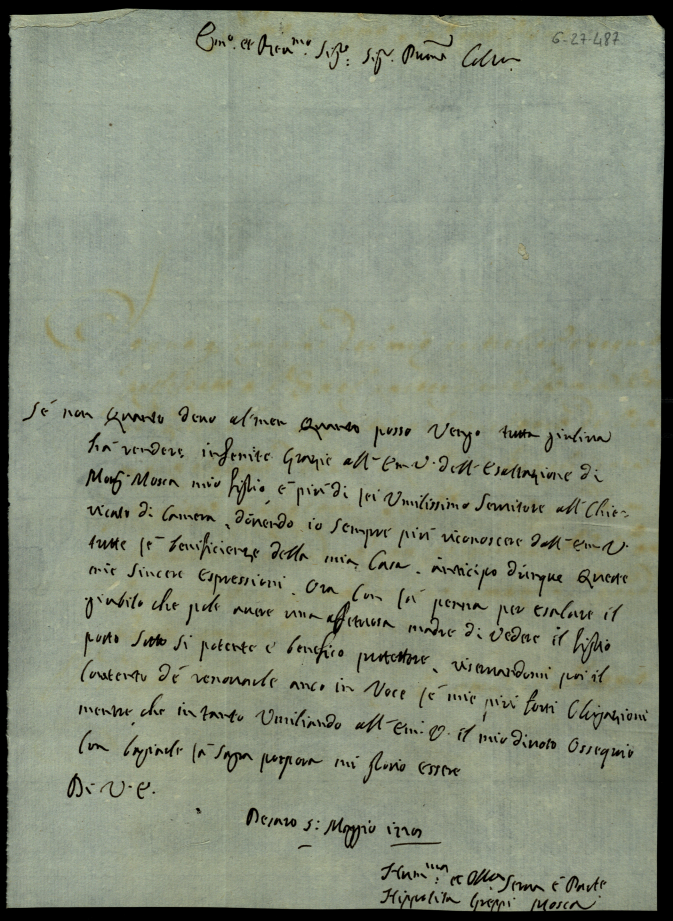 6-27-487
Emo. et Revmo. Sigr. Sigr. Prone Colmo.
Se non quanto devo al'men quanto posso vengo tutta giuliva
hà rendere infenite Grazie all'Em: V: dell'Esaltazione di
Monsr. Mosca mio figlio, è più di lei Umilissimo Servitore all'Chie=
ricato di Camera, dovendo io sempre più riconoscere dall'Em: V:
tutte le benificienze della mia Casa. anticipo dunque queste
mie sincere espressioni. Ora con la penna per esalare il
giubilo che pole avere una affetuosa madre di vedere il figlio
posto sotto si potente e benefico protettore, riservandomi poi il
contento dè renovarle anco in Voce le mie più forti Obligazioni
mentre che intanto Umiliando all'Em: V: il mio divoto Ossequio
con baciarle la Sagra porpora mi glorio essere
Di V. E.
Pesaro 5: Maggio
Humma: et Serva è
Hippolita Greppi Mosca